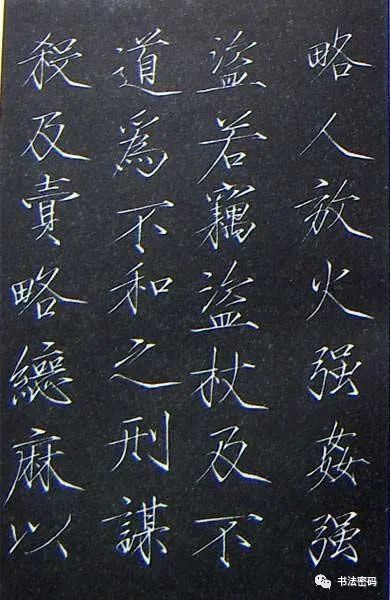 略人放火强姦强
盜若竊盜杖及不
道為不和之刑謀
殺及賣略緦麻以
书法密码